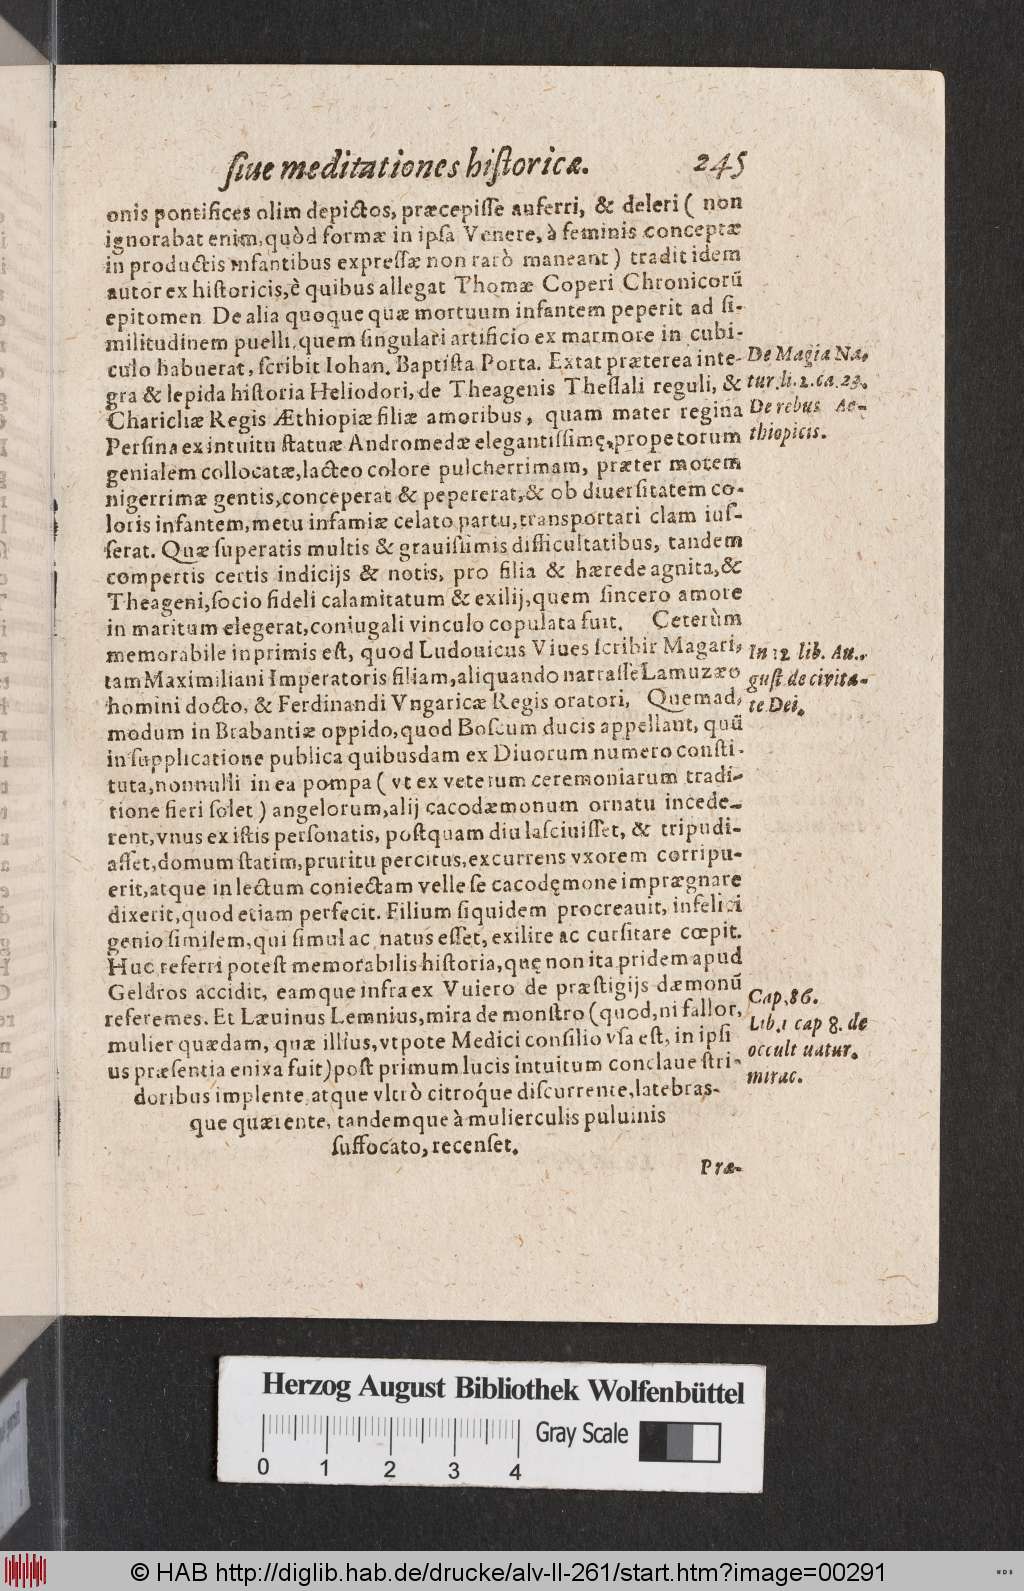 ſiue meditationes hiſtoricæ. 245
onis pontifices olim depictos, præcepiſſe auferri, & deleri ( non
ignorabat enim, quòd formæ in ipſa Venere, à feminis conceptæ
in productis infantibus expreſſæ non rarò maneant ) tradit idem
autor ex hiſtoricis, è quibus allegat Thomæ Coperi Chronicorũ
epitomen De alia quoque quæ mortuum infantem peperit ad ſi-
militudinem puelli, quem ſingulari artificio ex marmore in cubi-
culo habuerat, ſcribit Iohan. Baptiſta Porta. Extat præterea inte-
De Magia Na.
gra & lepida hiſtoria Heliodori, de Theagenis Theſſali reguli, &
tur. li. 2. ca. 23.
Charicliæ Regis Æthiopiæ filiæ amoribus, quam mater regina
De rebus Ae-
Perſina ex intuitu ſtatuæ Andromedæ elegantiſſimę, prope torum
thiopicis.
genialem collocatæ, lacteo colore pulcherrimam, præter morem
nigerrimæ gentis, conceperat & pepererat, & ob diuerſitatem co-
loris infantem, metu infamiæ celato partu, transportari clam iuſ-
ſerat. Quæ ſuperatis multis & grauiſsimis difficultatibus, tandem
compertis certis indicijs & notis, pro filia & hærede agnita, &
Theageni, ſocio fideli calamitatum & exilij, quem ſincero amore
in maritum elegerat, coniugali vinculo copulata fuit. Ceterùm
memorabile inprimis eſt, quod Ludouicus Viues ſcribit Magari,
In 12 lib. Au.
tam Maximiliani Imperatoris filiam, aliquando narraſſe Lamuzæo
guſt de civita-
homini docto, & Ferdinandi Vngaricæ Regis oratori, Quemad,
te Dei.
modum in Brabantiæ oppido, quod Boſcum ducis appellant, quũ
in ſupplicatione publica quibusdam ex Diuorum numero conſti-
tuta, nonnulli in ea pompa ( vt ex veterum ceremoniarum tradi-
tione fieri ſolet ) angelorum, alij cacodæmonum ornatu incede-
rent, vnus ex iſtis perſonatis, poſtquam diu laſciuiſſet, & tripudi-
aſſet, domum ſtatim, pruritu percitus, excurrens vxorem corripu-
erit, atque in lectum coniectam velle ſe cacodęmone imprægnare
dixerit, quod etiam perfecit. Filium ſiquidem procreauit, infelici
genio ſimilem, qui ſimul ac natus eſſet, exilire ac curſitare cœpit.
Huc referri poteſt memorabilis hiſtoria, quę non ita pridem apud
Geldros accidit, eamque infra ex Vuiero de præſtigijs dæmonũ
Cap. 86.
referemes. Et Læuinus Lemnius, mira de monſtro ( quod, ni fallor,
Lib. 1 cap 8. de
mulier quædam, quæ illius, vtpote Medici conſilio vſa eſt, in ipſi
occult natur.
us præſentia enixa fuit) poſt primum lucis intuitum conclaue ſtri-
mirac.
doribus implente atque vltrò citróque diſcurrente, latebras-
que quærente, tandemque à mulierculis puluinis
ſuffocato, recenſet.
Præ-
Herzog August Bibliothek Wolfenbüttel
Gray Scale
0 1 2 3 4
© HAB http://diglib.hab.de/drucke/alv-ll-261/start.htm?image=00291